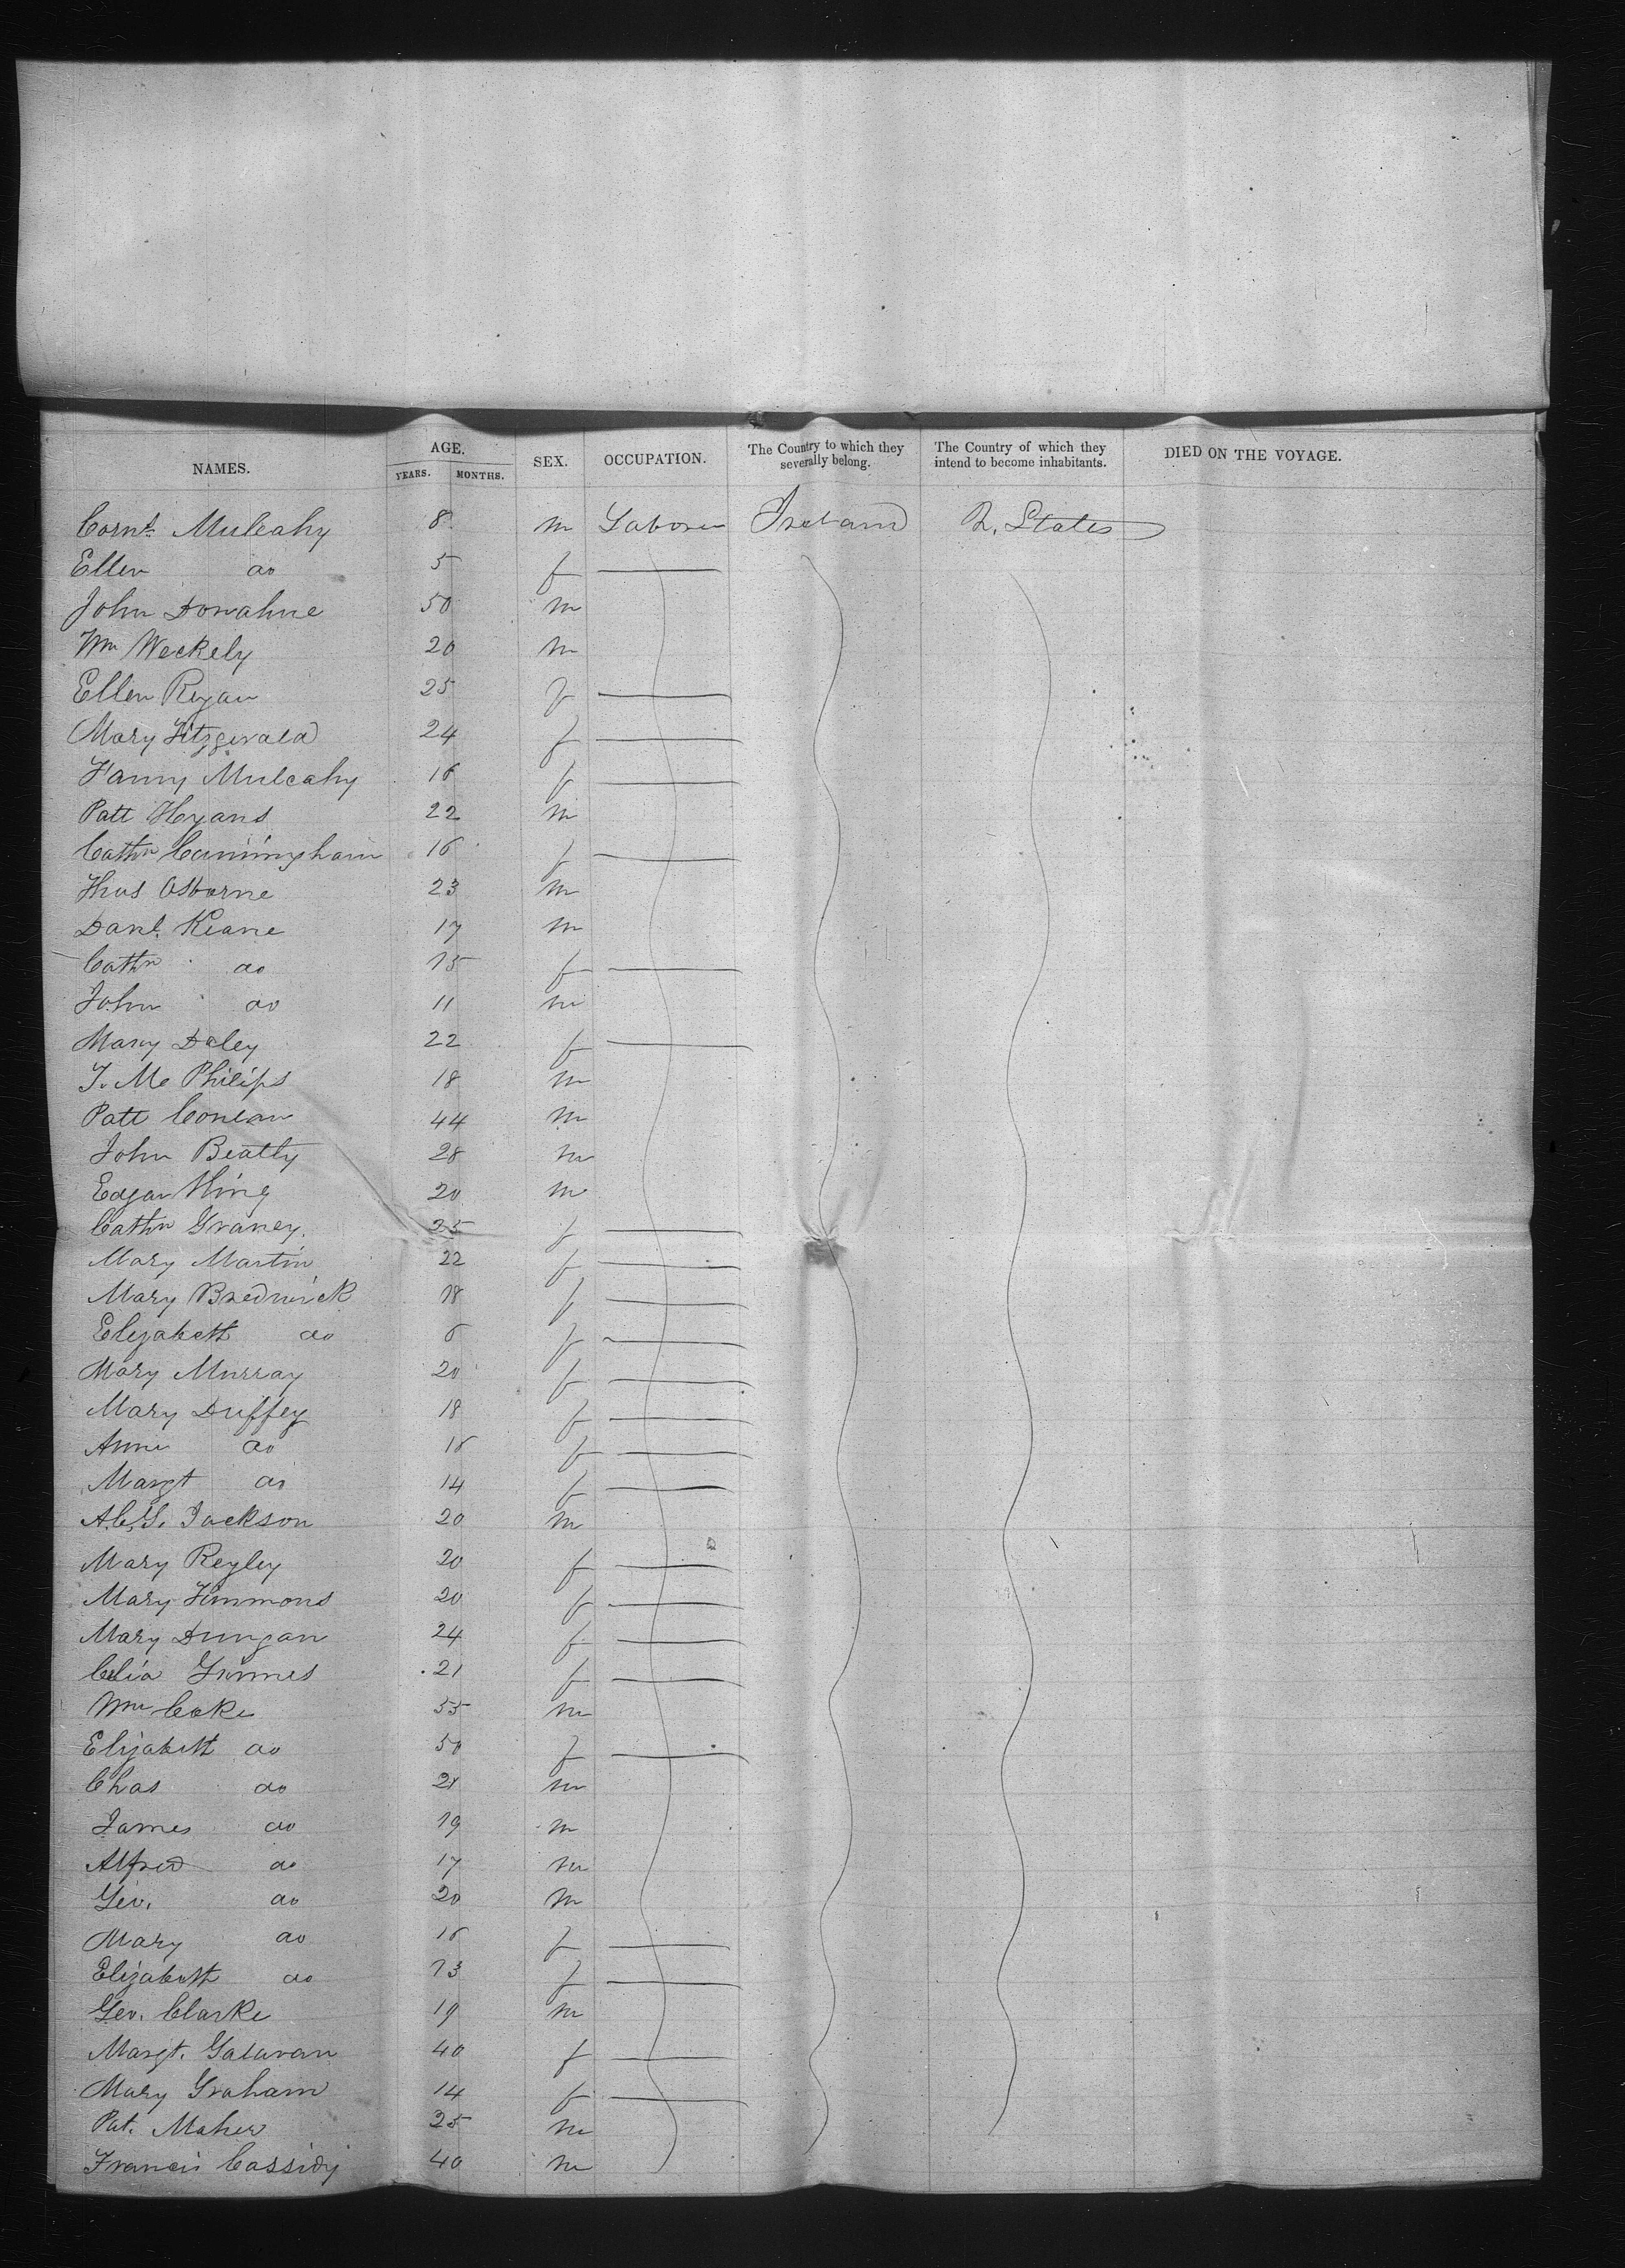 NAMES. AGE. YEARS. MONTHS. SEX. OCCUPATION. The Country to which they severally belong. The Country of which they intend to become inhabitants. DIED ON THE VOYAGE.
Cornl. Mulcahy 8 m Laborer Ireland U. States
Ellen do 5 f
John Donahue 50 m
Wm Weekely 20 m
Ellen Regan 25 f
Mary Fitzgerald 24 f
Fanny Mulcahy 16 f
Patt Hyans 22 m
Cathn Cunningham 16 f
Thos Osborne 23 m
Danl. Keane 17 m
Cathn do 15 f
John do 11 m
Mary Daley 22 f
J. Mc Philips 18 m
Patt Conlan 44 m
John Beatty 28 m
Edgar King 20 m
Cathn Graney. 25 f
Mary Martin 22 f
Mary 18 f
Elizabeth do 6 f
Mary Murray 20 f
Mary Duffey 18 f
Anne do 16 f
Margt do 14 f
A.C.S. Jackson 20 m
Mary Regley 20 f
Mary Timmons 20 f
Mary Dungan 24 f
Celia Grimes 21 f
Wm Coke 55 m
Elizabeth do 50 f
Chas do 21 m
James do 19 m
Alfred do 17 m
Geo. do 20 m
Mary do 16 f
Elizabeth do 13 f
Geo. Clarke 19 m
Margt. Galavan 40 f
Mary Graham 14 f
Pat. Maher 25 m
Francis Cassidy 40 m